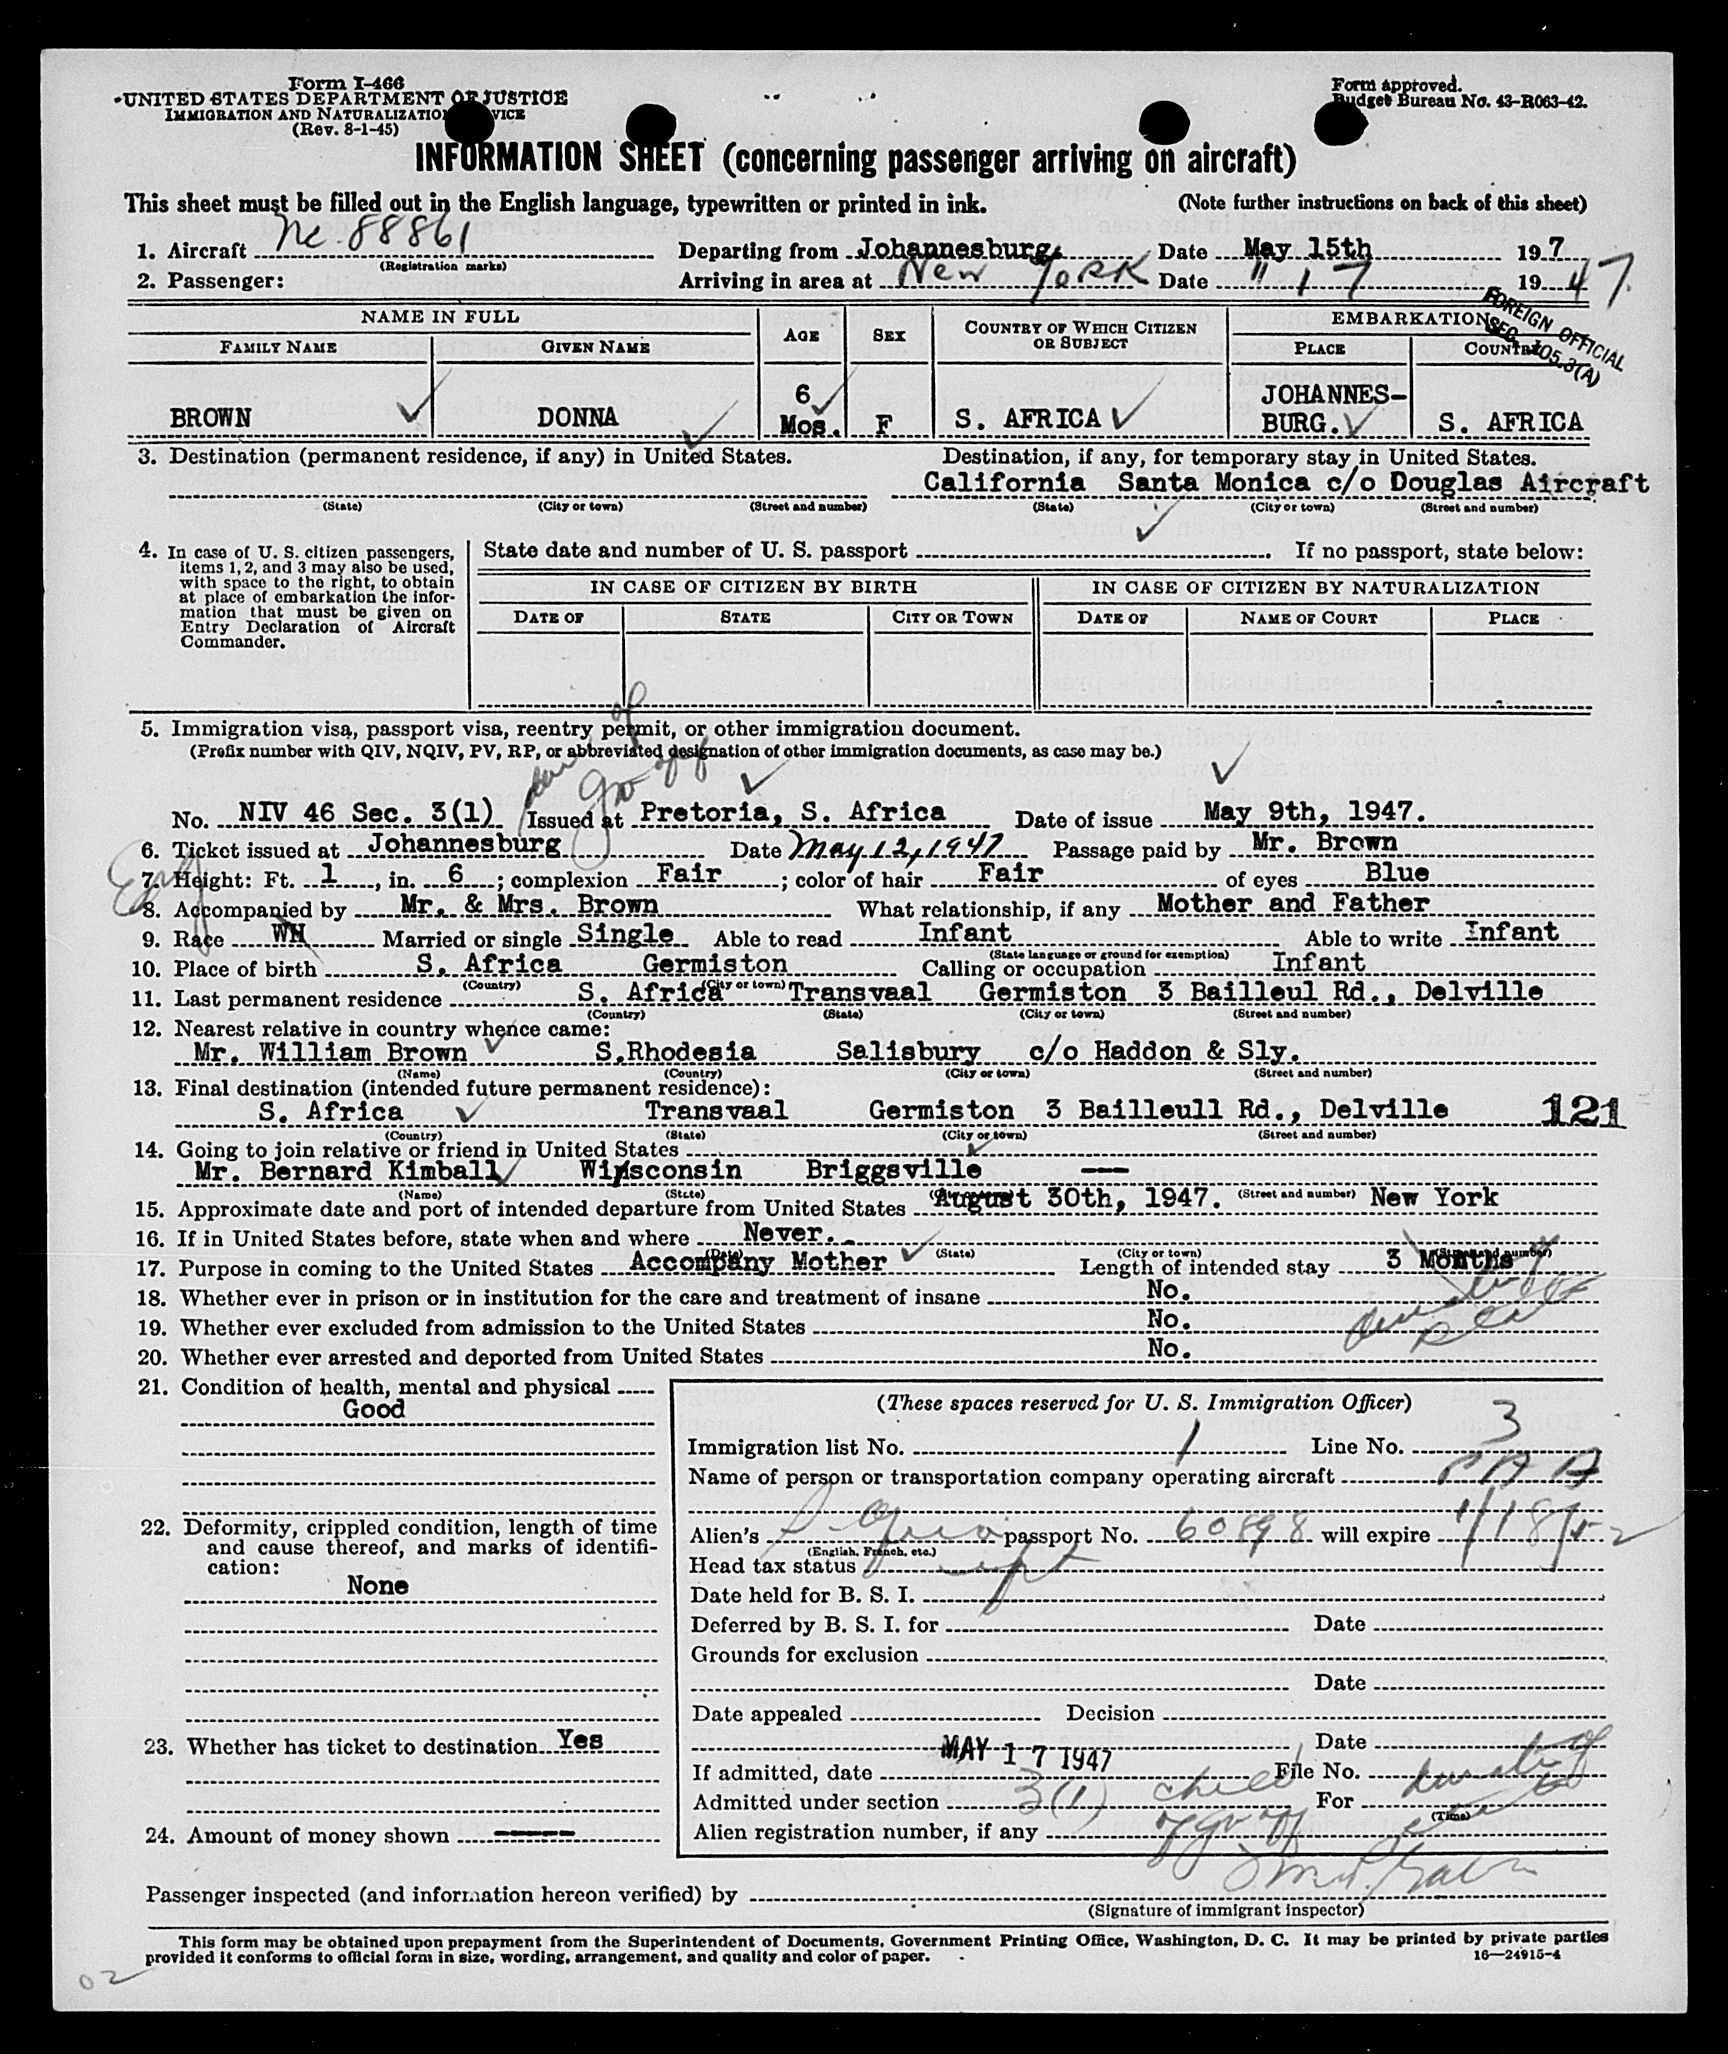 Form I-466
UNITED STATES DEPARTMENT OF JUSTICE
IMMIGRATION AND NATURALIZATION SERVICE
(Rev. 8-1-45)
Form approved.
Budget Bureau No. 43-R063-42.
INFORMATION SHEET (concerning passenger arriving on aircraft)
This sheet must be filled out in the English language, typewritten or printed in ink. (Note further instructions on back of this sheet)
1. Aircraft Nc 88861 Departing from Johannesburg. Date May 15th 19 7
(Registration marks)
2. Passenger: Arriving in area at New York Date " 17 19 47.
FOREIGN OFFICIAL
SEC. 105.3(A)
NAME IN FULL AGE SEX COUNTRY OF WHICH CITIZEN OR SUBJECT EMBARKATION
FAMILY NAME GIVEN NAME PLACE COUNTRY
BROWN DONNA 6 Mos. F S. AFRICA JOHANNES-BURG. S. AFRICA
3. Destination (permanent residence, if any) in United States. Destination, if any, for temporary stay in United States.
California Santa Monica c/o Douglas Aircraft
(State) (City or town) (Street and number) (State) (City or town) (Street and number)
4. In case of U. S. citizen passengers, items 1, 2, and 3 may also be used, with space to the right, to obtain at place of embarkation the information that must be given on Entry Declaration of Aircraft Commander.
State date and number of U. S. passport If no passport, state below:
IN CASE OF CITIZEN BY BIRTH IN CASE OF CITIZEN BY NATURALIZATION
DATE OF STATE CITY OR TOWN DATE OF NAME OF COURT PLACE
5. Immigration visa, passport visa, reentry permit, or other immigration document.
(Prefix number with QIV, NQIV, PV, RP, or abbreviated designation of other immigration documents, as case may be.)
No. NIV 46 Sec. 3(1) Issued at Pretoria, S. Africa Date of issue May 9th, 1947.
6. Ticket issued at Johannesburg Date May 12, 1947 Passage paid by Mr. Brown
Eng
7. Height: Ft. 1, in. 6; complexion Fair; color of hair Fair of eyes Blue
8. Accompanied by Mr. & Mrs. Brown What relationship, if any Mother and Father
9. Race WH Married or single Single Able to read Infant Able to write Infant
(State language or ground for exemption)
10. Place of birth S. Africa Germiston Calling or occupation Infant
(Country) (City or town)
11. Last permanent residence S. Africa Transvaal Germiston 3 Bailleul Rd., Delville
(Country) (State) (City or town) (Street and number)
12. Nearest relative in country whence came:
Mr. William Brown S.Rhodesia Salisbury c/o Haddon & Sly.
(Name) (Country) (City or town) (Street and number)
13. Final destination (intended future permanent residence):
S. Africa Transvaal Germiston 3 Bailleull Rd., Delville 121
(Country) (State) (City or town) (Street and number)
14. Going to join relative or friend in United States
Mr. Bernard Kimball Wisconsin Briggsville ----
(Name) (State) (City or town) (Street and number)
15. Approximate date and port of intended departure from United States August 30th, 1947. New York
16. If in United States before, state when and where Never.
(Date) (State) (City or town) (Street and number)
17. Purpose in coming to the United States Accompany Mother Length of intended stay 3 Months
18. Whether ever in prison or in institution for the care and treatment of insane No.
19. Whether ever excluded from admission to the United States No.
20. Whether ever arrested and deported from United States No.
21. Condition of health, mental and physical
Good
22. Deformity, crippled condition, length of time and cause thereof, and marks of identification:
None
23. Whether has ticket to destination Yes
24. Amount of money shown -----
(These spaces reserved for U. S. Immigration Officer)
Immigration list No. 1 Line No. 3
Name of person or transportation company operating aircraft PAA
Alien's S. Africa passport No. 60898 will expire 1/18/52
(English, French, etc.)
Head tax status
Date held for B. S. I.
Deferred by B. S. I. for Date
Grounds for exclusion
Date
Date appealed Decision
Date
If admitted, date MAY 17 1947 File No.
Admitted under section 3(1) child For
(Time)
Alien registration number, if any
Passenger inspected (and information hereon verified) by
(Signature of immigrant inspector)
This form may be obtained upon prepayment from the Superintendent of Documents, Government Printing Office, Washington, D. C. It may be printed by private parties
provided it conforms to official form in size, wording, arrangement, and quality and color of paper.
16—24915-4
02